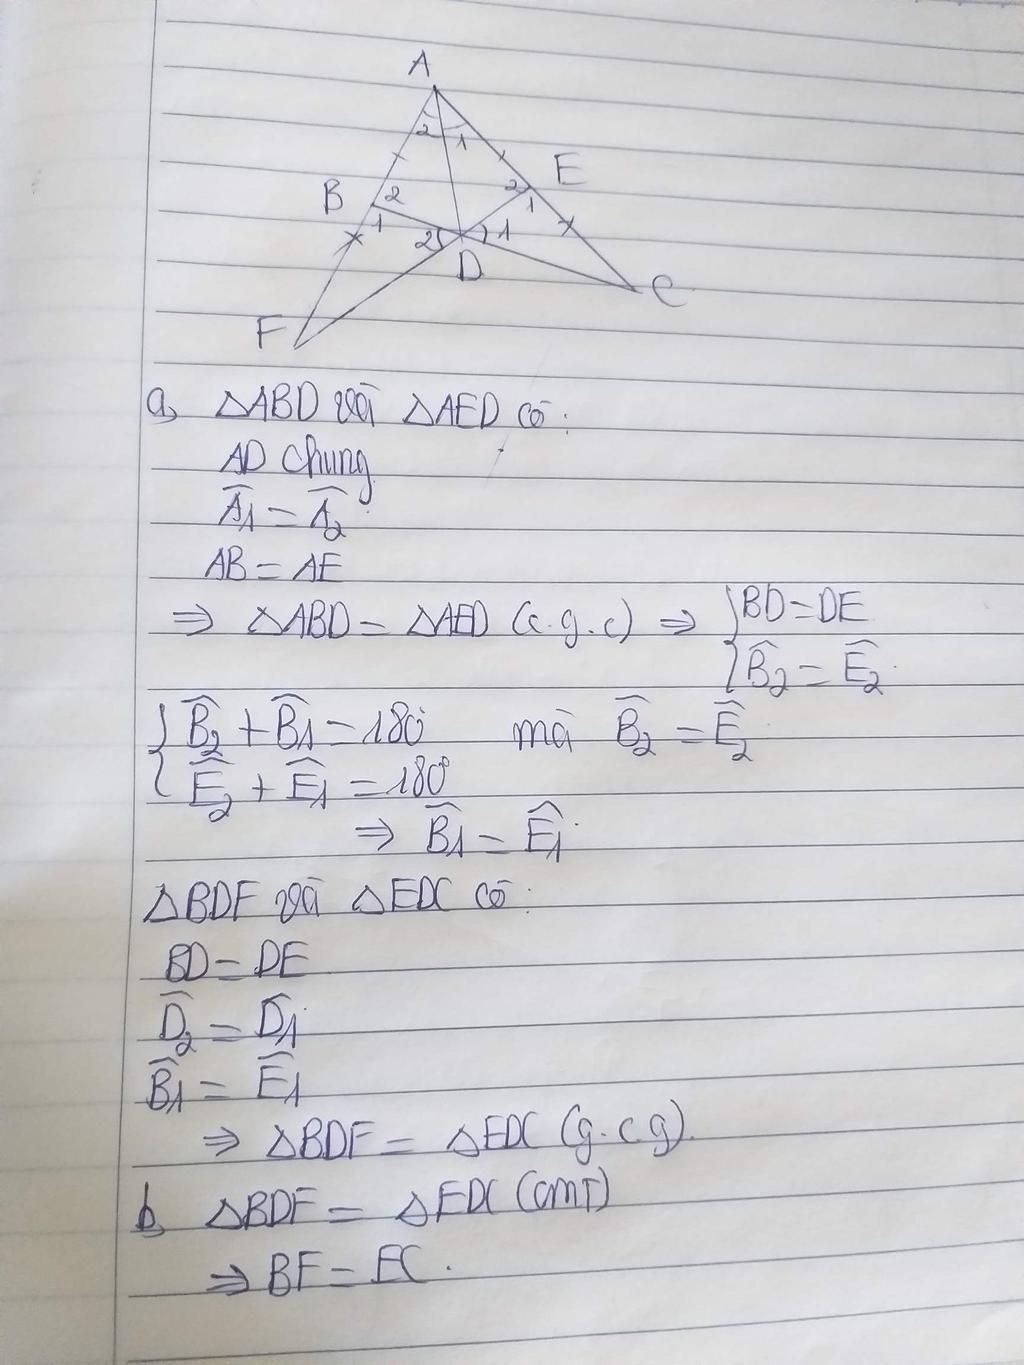 A
2 1
E
B 2
2 1
1
2 1
D
C
F
a, △ABD và △AED có:
AD chung
Â1 = Â2
AB = AE
⇒ △ABD = △AED (c.g.c) ⇒ { BD = DE
B̂2 = Ê2.
{ B̂2 + B̂1 = 180° mà B̂2 = Ê2
Ê2 + Ê1 = 180°
⇒ B̂1 = Ê1.
△BDF và △EDC có:
BD = DE
D̂2 = D̂1
B̂1 = Ê1
⇒ △BDF = △EDC (g.c.g).
b, △BDF = △EDC (cmt)
⇒ BF = EC.